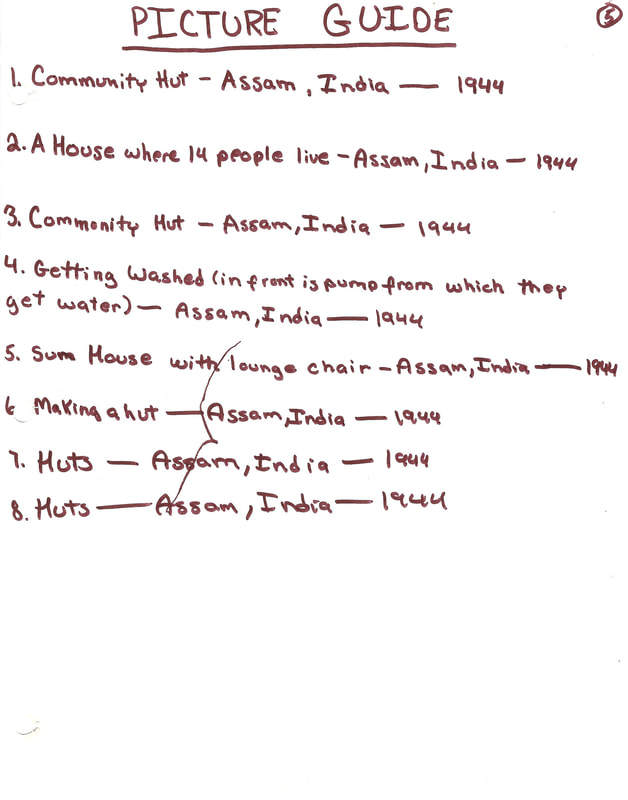 PICTURE GUIDE
5
1. Community Hut - Assam, India — 1944
2. A House where 14 people live - Assam, India - 1944
3. Commonity Hut - Assam, India - 1944
4. Getting Washed (in front is pump from which they
get water) - Assam, India — 1944
5. Sum House with lounge chair - Assam, India — 1944
6 Making a hut — Assam, India — 1944
7. Huts — Assam, India — 1944
8. Huts — Assam, India — 1944